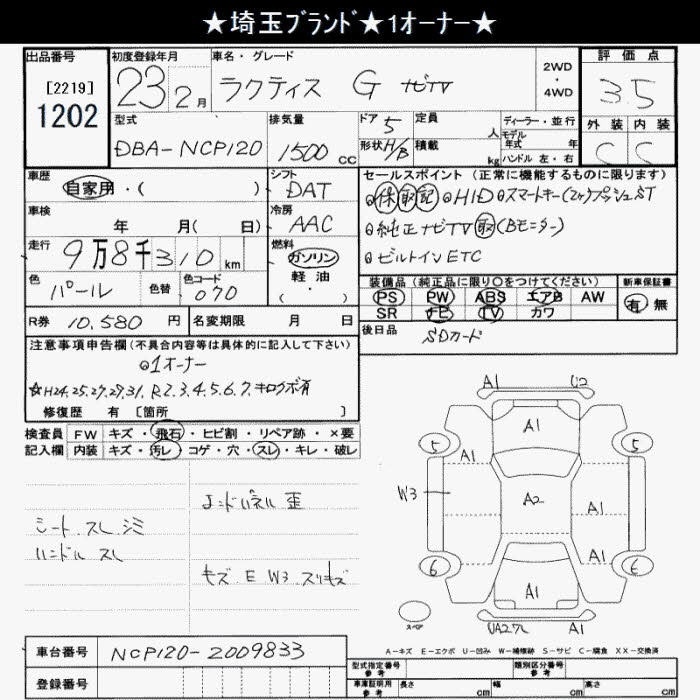 ★埼玉ﾌﾞﾗﾝﾄﾞ★1オーナー★
出品番号
[2219]
1202
初度登録年月
23年2月
車名・グレード
ラクティス G ナビTV
2WD
・
4WD
評価点
3.5
外装 内装
C C
型式
DBA-NCP120
排気量
1500cc
ドア 5
形状 H/B
定員 人
積載 kg
ディーラー・並行
モデル年式 年
ハンドル 左・右
車歴
自家用・( )
シフト
DAT
セールスポイント(正常に機能するものに限ります)
◎保 取 記 ◎HID ◎スマートキー(2ヶ)プッシュST
◎純正ナビTV 取 (Bモニター)
◎ビルトインETC
車検
年 月( 日)
冷房
AAC
走行
9万8千310km
燃料
ガソリン
軽・油
( ・ )
色
パール
色替
色コード
070
装備品(純正品に限り○をつけてください)
PS PW ABS エアB AW
SR ナビ TV カワ
新車保証書
有 無
R券 10,580円
名変期限 月 日
後日品
SDカード
注意事項申告欄(不具合内容等は具体的に記入して下さい)
◎1オーナー
☆H24.25.27.29.31. R2.3.4.5.6.7.キロクボ有
修復歴 有 [箇所 ]
検査員記入欄
FW キズ・飛石・ヒビ割・リペア跡・×要
内装 キズ・汚レ・コゲ・穴・スレ・キレ・破レ
シート スレ シミ
ハンドル スレ
エンドパネル 歪
キズ E W3 スリキズ
A1
A1
5
5
A1
W3
A2
A1
A1
6
A1
A1
スペア
A-キズ E-エクボ U-凹み W-補修跡 S-サビ C-腐食 XX-交換済
車台番号
NCP120-2009833
登録番号
型式指定番号
参考
類別区分番号
参考
車庫証明用
参考
長さ cm
幅 cm
高さ cm